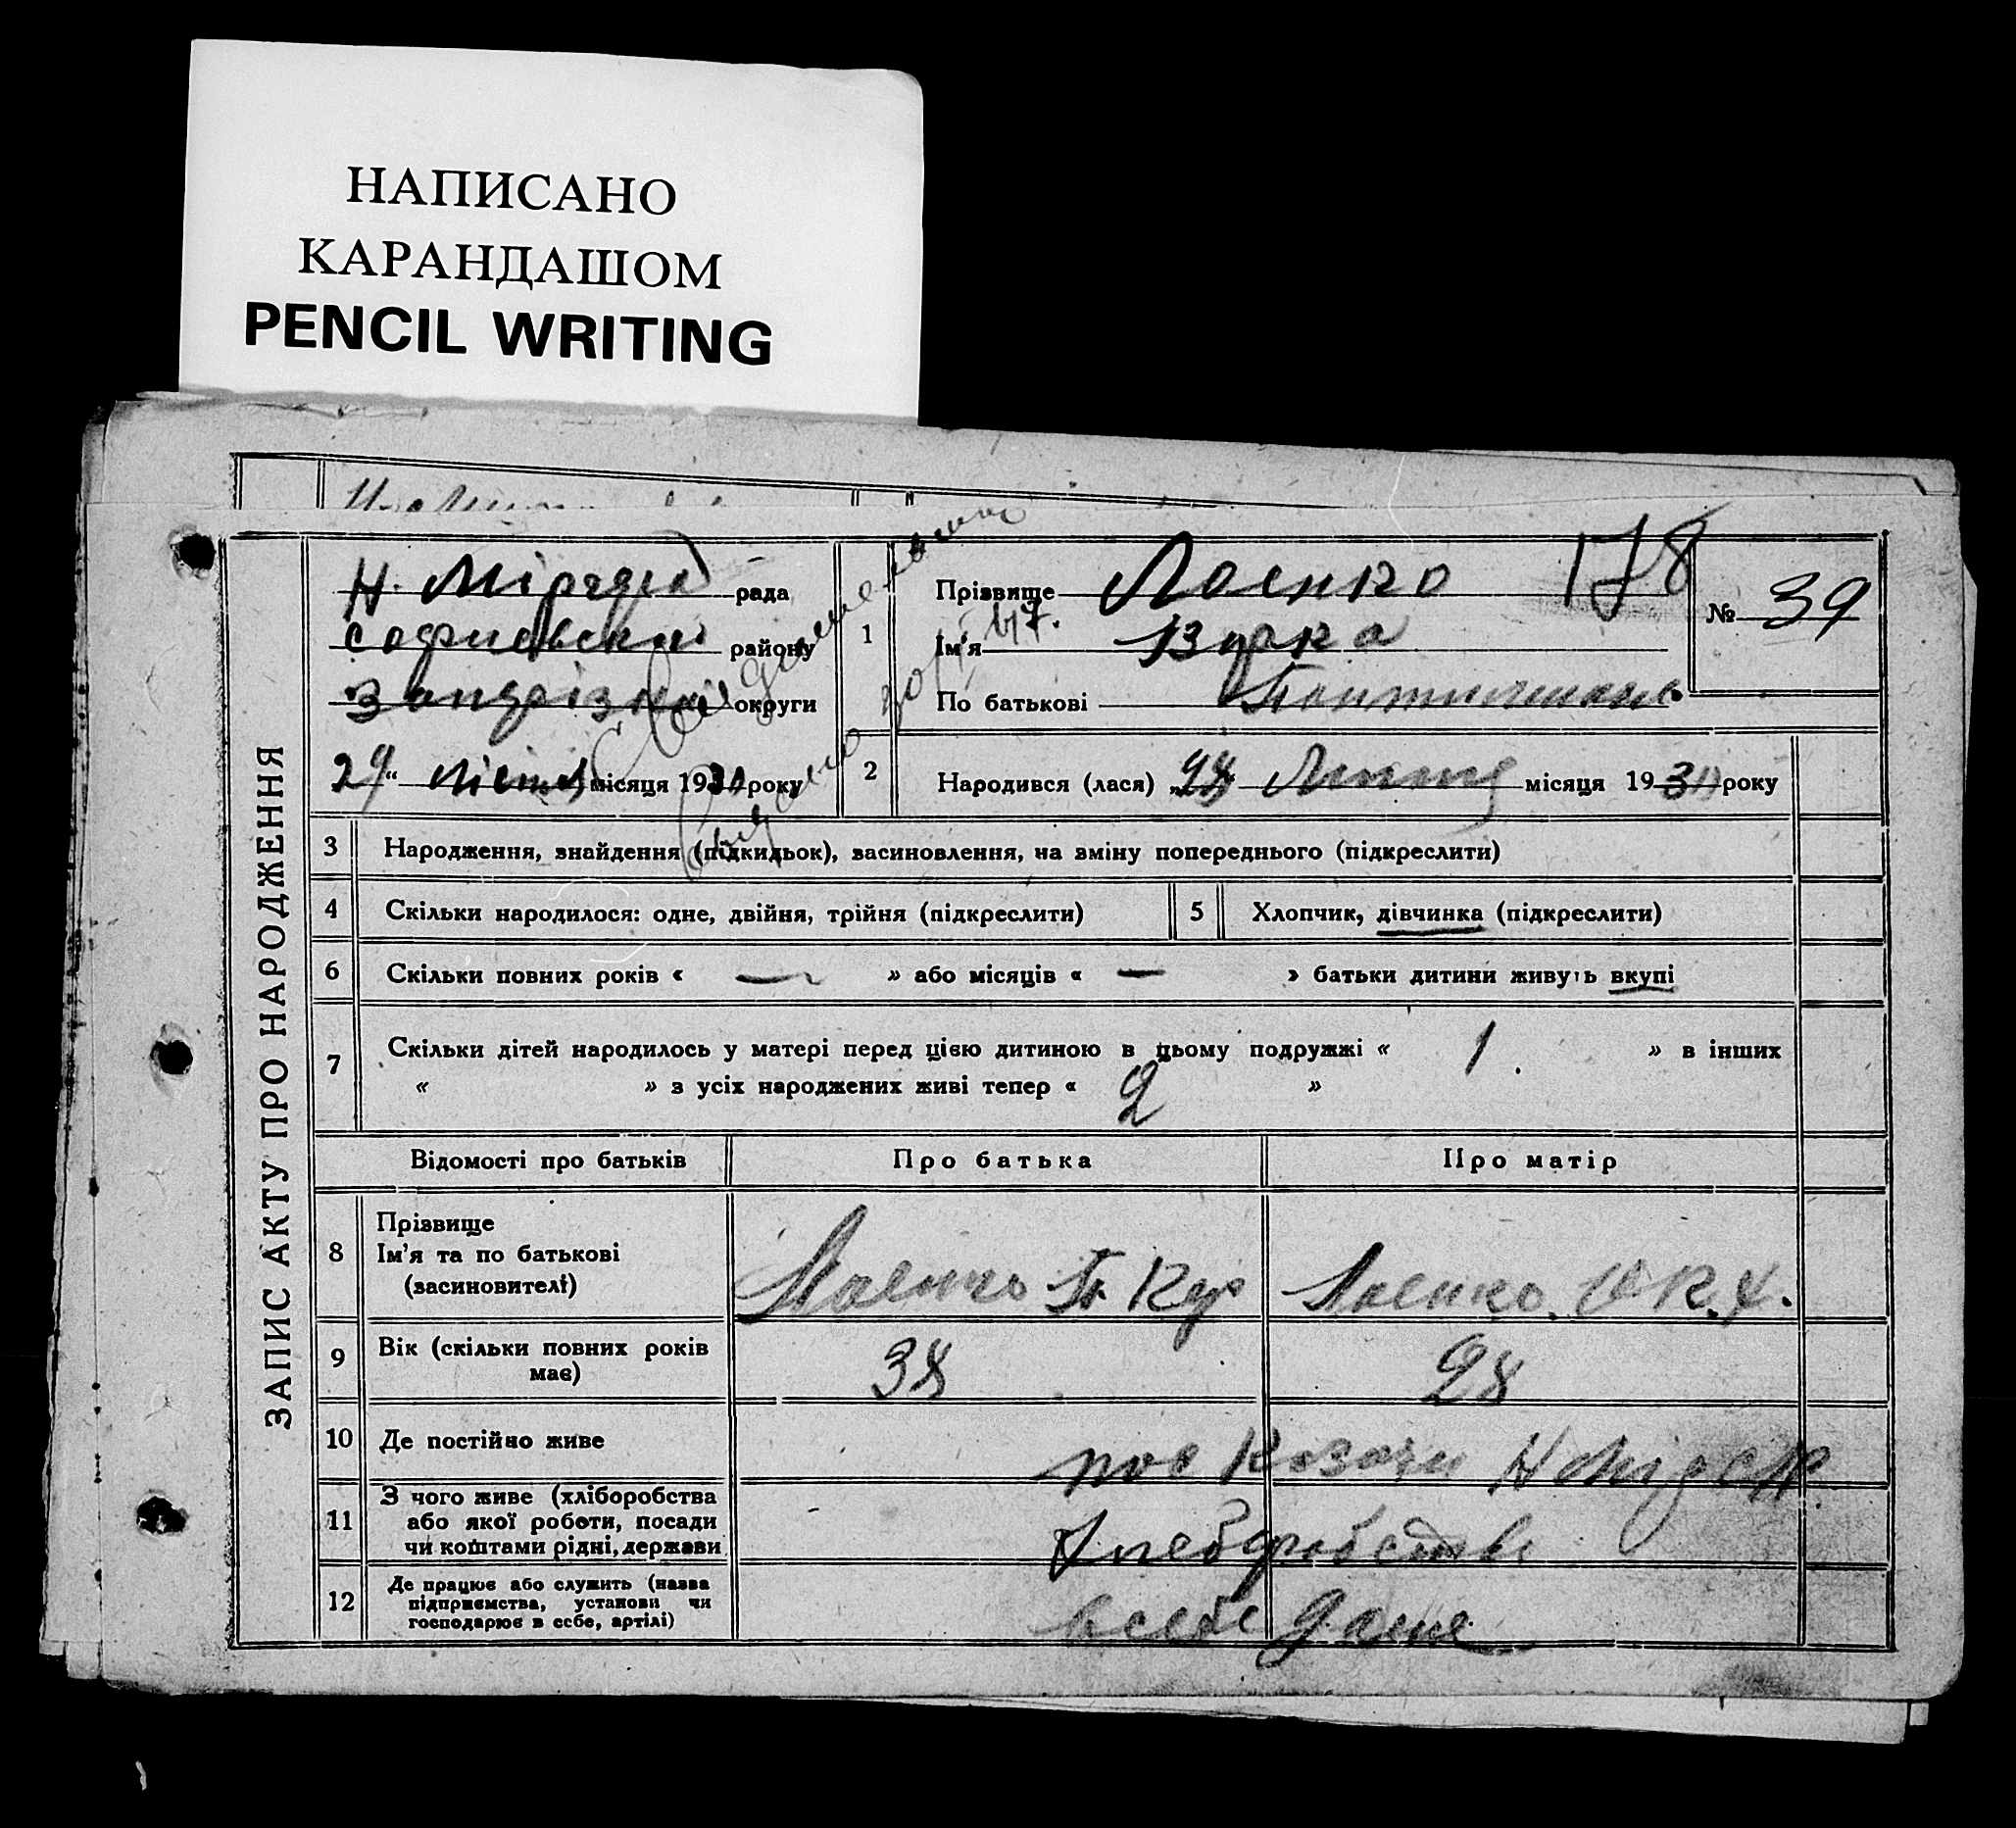 НАПИСАНО
КАРАНДАШОМ
PENCIL WRITING
ЗАПИС АКТУ ПРО НАРОДЖЕННЯ
Н. рада
району
округи
29 “ місяця 1930 року
1
Прізвище Лоенко 178
Ім'я
По батькові
№ 39
2
Народився (лася) „28 Липня місяця 1930 року
3 Народження, знайдення (підкидьок), васиновлення, на вміну попереднього (підкреслити)
4 Скільки народилося: одне, двійня, трійня (підкреслити) 5 Хлопчик, дівчинка (підкреслити)
6 Скільки повних років « — » або місяців « — » батьки дитини живуть вкупі
7 Скільки дітей народилось у матері перед цією дитиною в цьому подружжі « 1. » в інших
« » з усіх народжених живі тепер « 2 »
Відомості про батьків Про батька Про матір
8 Прізвище
Ім'я та по батькові
(засиновителі)
Лоенко Лоенко.
9 Вік (скільки повних років
має)
38 28
10 Де постійно живе пос Козачи
11 З чого живе (хліборобства
або якої роботи, посади
чи коштами рідні, держави
12 Де працює або служить (назва
підприємства, установи чи
господарює в себе, артілі)
в себе дома